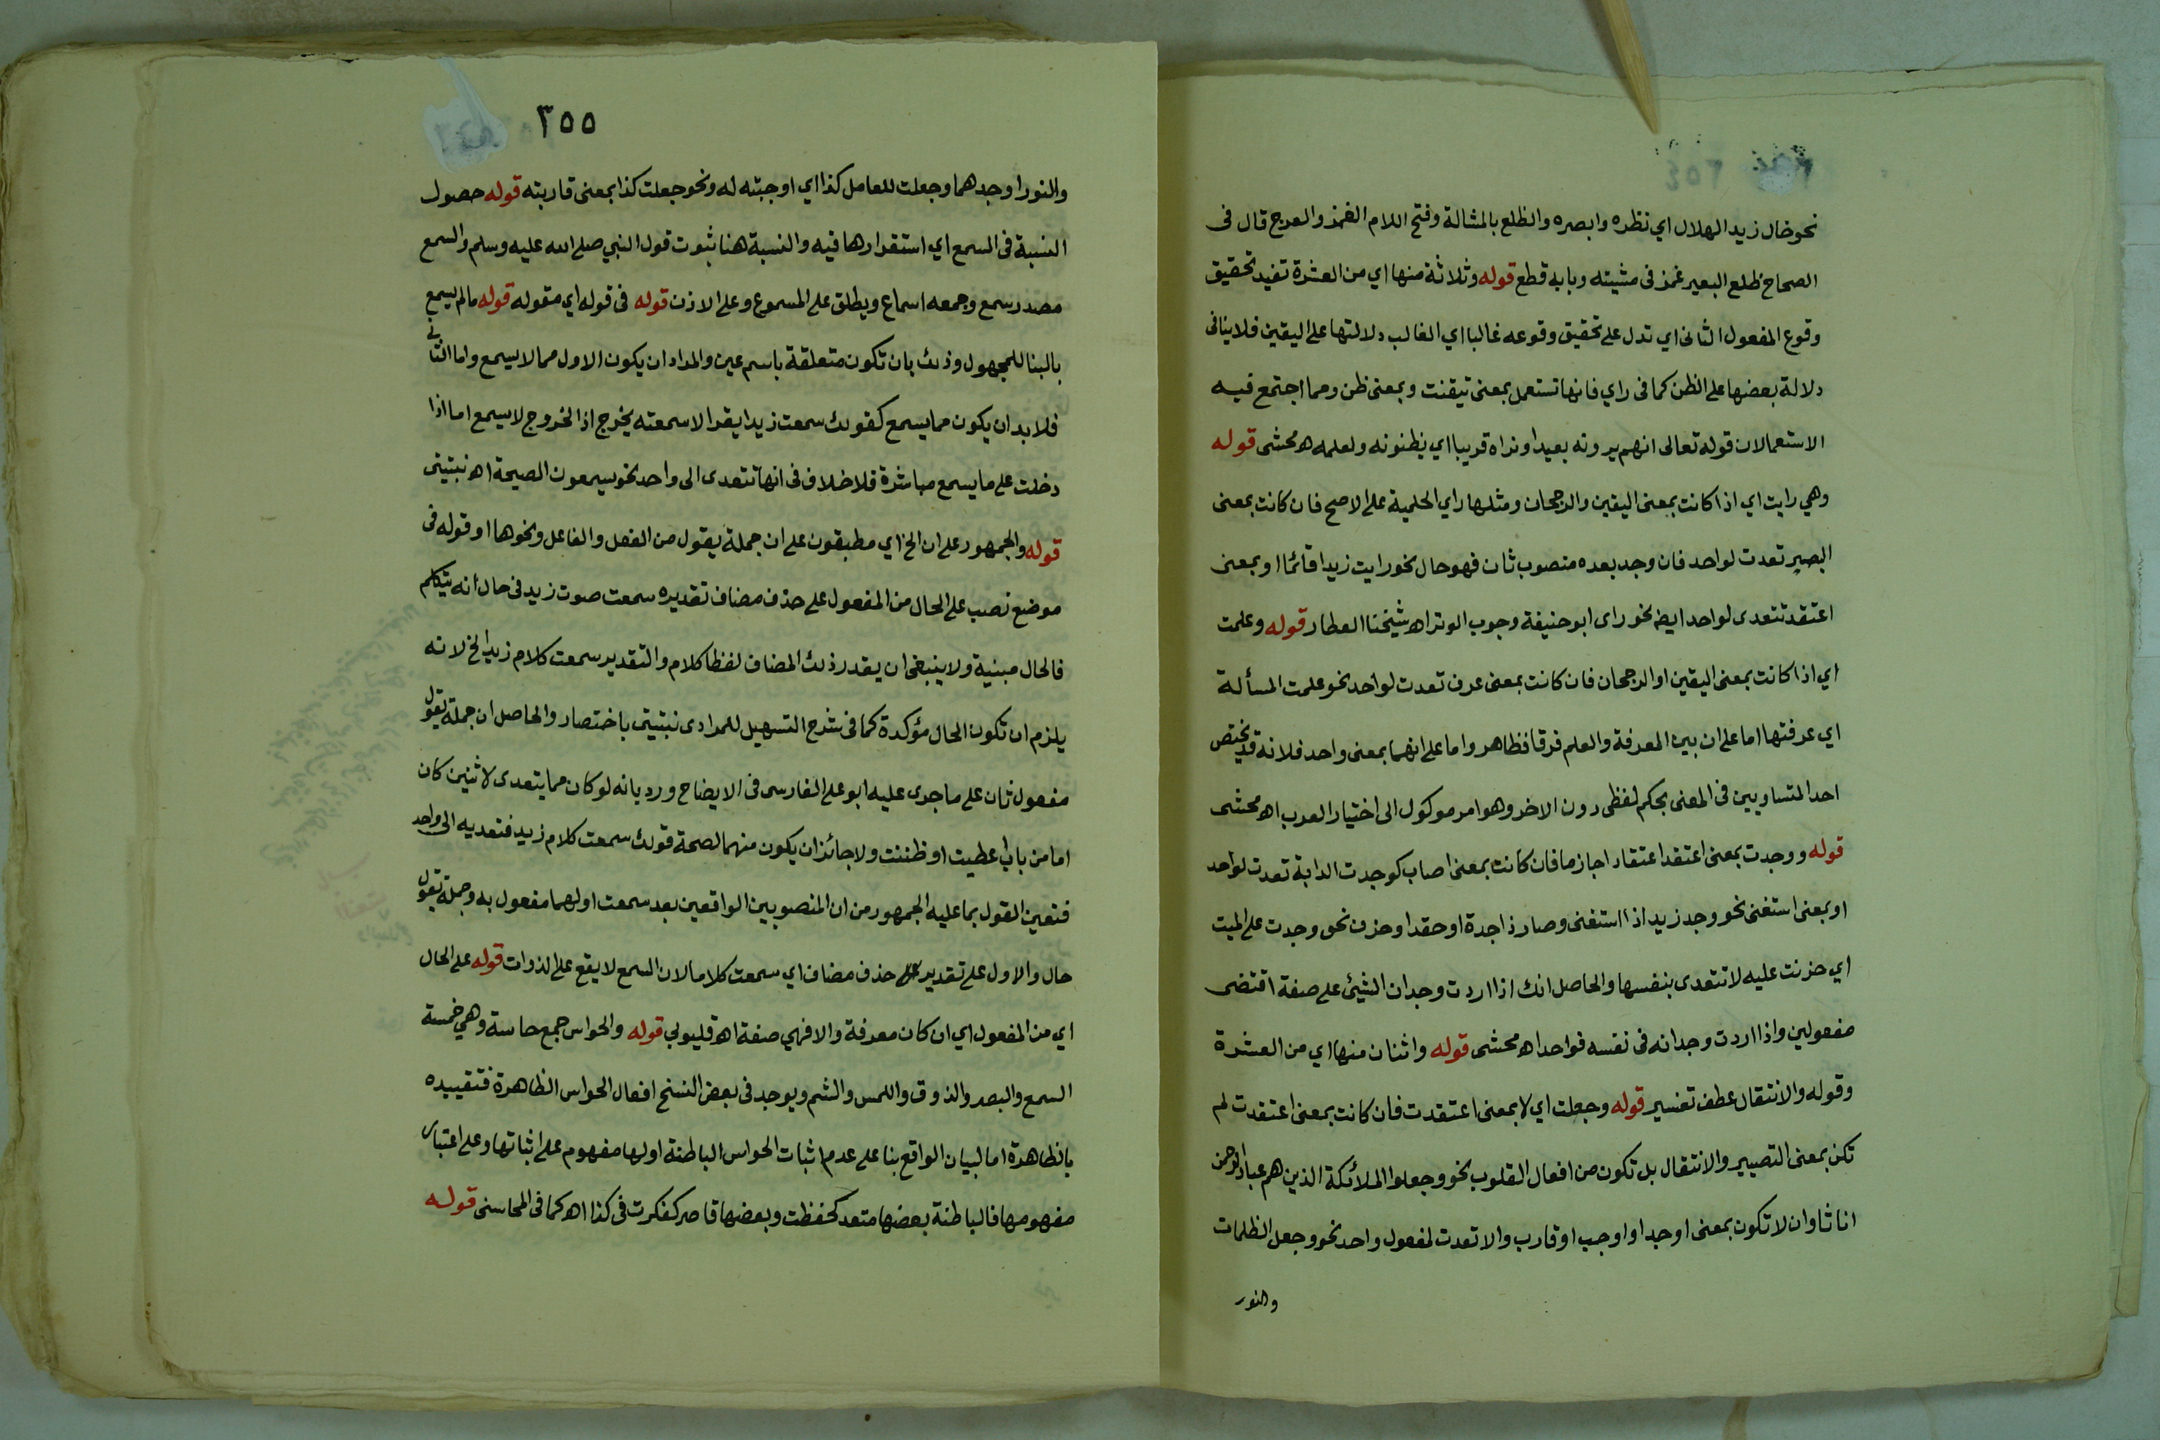 ٣٥٤
نحو خال زيد الهلال اي نظره وابصره والظلع بالمشالة وفتح اللام الغمز والعرج قال فى
الصحاح ظلع البعير غمز فى مشيته وبابه قطع قوله وثلاثة منها اي من العشرة تفيد تحقيق
وقوع المفعول الثانى اي تدل على تحقيق وقوعه غالبا اي الغالب دلالتها على اليقين فلاينافى
دلالة بعضها على الظن كما فى راي فانها تستعمل بمعنى تيقنت وبمعنى ظن ومما اجتمع فيه
الاستعمالان قوله تعالى انهم يرونه بعيدا ونراه قريبا اي يظنونه ونعلمه اه محشى قوله
وهي رايت اي اذا كانت بمعنى اليقين والرجحان ومثلها راي الحلمية على الاصح فان كانت بمعنى
البصير تعدت لواحد فان وجد بعده منصوب ثان فهو حال نحو رايت زيدا قائما او بمعنى
اعتقد تتعدى لواحد ايض نحو راى ابو حنيفة وجوب الوتر اه شيخنا العطار قوله وعلمت
اي اذا كانت بمعنى اليقين او الرجحان فان كانت بمعنى عرف تعدت لواحد نحو علمت المسألة
اي عرفتها اما على ان بين المعرفة والعلم فرقا فظاهر واما على انهما بمعنى واحد فلانه قد يختص
احد المتساويين فى المعنى بحكم لفظى دون الاخر وهو امر موكول الى اختيار العرب اه محشى
قوله ووجدت بمعنى اعتقد اعتقادا جازما فان كانت بمعنى اصاب كوجدت الدابة تعدت لواحد
او بمعنى استغنى نحو وجد زيد اذا استغنى وصار ذا جدة او حقد او حزن نحو وجدت على الميت
اي حزنت عليه لا تتعدى بنفسها والحاصل انك اذا اردت وجدان الشيئ على صفة اقتضى
مفعولين واذا اردت وجدانه فى نفسه فواحدا اه محشى قوله واثنان منها اي من العشرة
وقوله والانتقال عطف تفسير قوله وجعلت اي لا بمعنى اعتقدت فان كانت بمعنى اعتقدت لم
تكن بمعنى التصيير والانتقال بل تكون من افعال القلوب نحو وجعلوا الملائكة الذين هم عباد الرحمن
اناثا وان لا تكون بمعنى اوجد او اوجب او قارب والا تعدت لمفعول واحد نحو وجعل الظلمات
والنور
٣٥٥
والنور اوجدهما وجعلت للعامل كذا اي اوجبته له ونحو جعلت كذا بمعنى قاربته قوله حصول
النسبة فى السمع اي استقرارها فيه والنسبة هنا ثبوت قول النبي صلى الله عليه وسلم والسمع
مصدر سمع وجمعه اسماع ويطلق على المسموع وعلى الاذن قوله فى قوله اي مقوله قوله مالم يسمع
بالبنا للمجهول وذلك بان تكون متعلقة باسم عين والمراد ان يكون الاول مما لا يسمع واما الثانى
فلا بد ان يكون مما يسمع كقولك سمعت زيدا يقرا لا سمعته يخرج اذ الخروج لا يسمع اما اذا
دخلت على ما يسمع مباشرة فلا خلاف فى انها تتعدى الى واحد نحو يسمعون الصيحة اه نبتيتى
قوله والجمهور على ان الخ اي مطبقون على ان جملة يقول من الفعل والفاعل ونحوها او قوله فى
موضع نصب على الحال من المفعول على حذف مضاف تقديره سمعت صوت زيد فى حال انه يتكلم
فالحال مبنية ولا ينبغى ان يقدر ذلك المضاف لفظ كلام والتقدير سمعت كلام زيد الخ لانه
يلزم ان تكون الحال مؤكدة كما فى شرح التسهيل للمرادى نبتيتى باختصار والحاصل ان جملة يقول
مفعول ثان على ما جرى عليه ابو على الفارسى فى الايضاح ورد بانه لو كان مما يتعدى لاثنين كان
اما من باب اعطيت او ظننت ولا جائز ان يكون منهما لصحة قولك سمعت كلام زيد فتعديه الى واحد
فتعين القول بما عليه الجمهور من ان المنصوبين الواقعين بعد سمعت اولهما مفعول به وجملة يقول
حال والاول على تقدير حذف مضاف اي سمعت كلاما لان السمع لا يقع على الذوات قوله على الحال
اي من المفعول اي ان كان معرفة والا فهي صفة اه قليوبي قوله والحواس جمع حاسة وهي خمسة
السمع والبصر والذوق واللمس والشم ويوجد فى بعض النسخ افعال الحواس الظاهرة فتقييده
بالظاهرة اما لبيان الواقع بنا على عدم اثبات الحواس الباطنة او لها مفهوم على اثباتها وعلى اعتبار
مفهومها فالباطنة بعضها متعد كحفظت وبعضها قاصر كفكرت فى كذا اه كما فى المحاسنى قوله